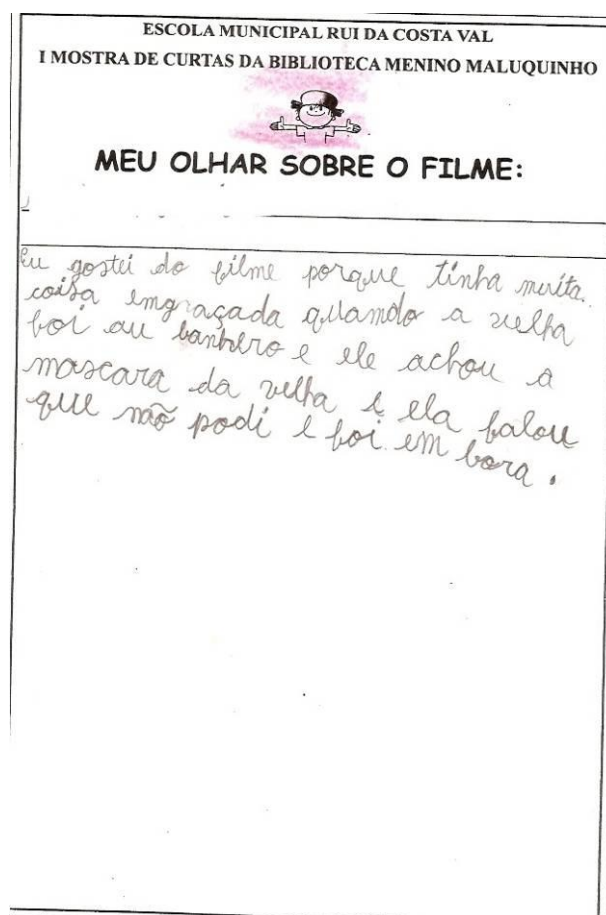 ESCOLA MUNICIPAL RUI DA COSTA VAL
I MOSTRA DE CURTAS DA BIBLIOTECA MENINO MALUQUINHO
MEU OLHAR SOBRE O FILME:
Eu gostei do filme porque tinha muita
coisa emgraçada quamdo a velha
foi au banhero e ele achou a
mascara da velha e ela falou
que não podi e foi em bora.